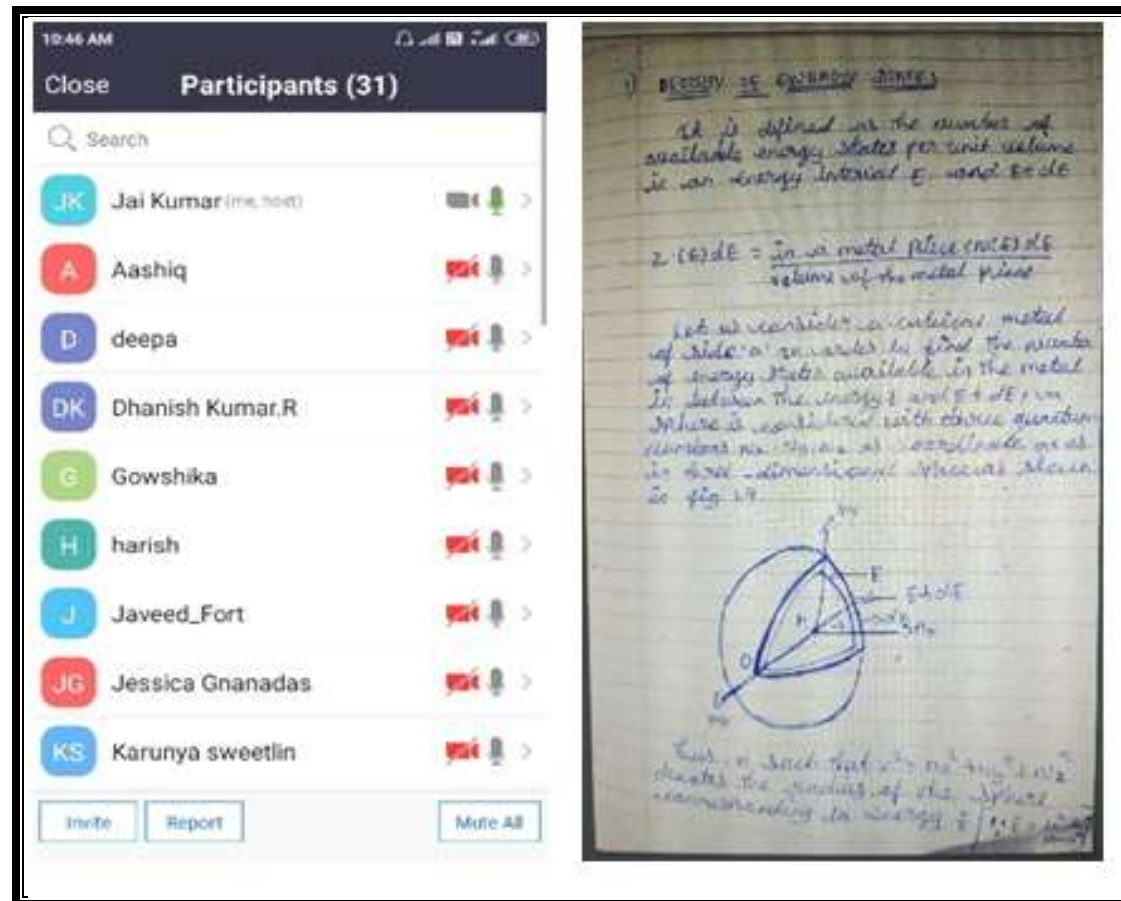 10:46 AM
Close Participants (31)
Search
JK Jai Kumar (me, host)
A Aashiq
D deepa
DK Dhanish Kumar.R
G Gowshika
H harish
J Javeed_Fort
JG Jessica Gnanadas
KS Karunya sweetlin
Invite Report Mute All
1) DENSITY OF STATES
It is defined as the number of
available energy states per unit volume
in an energy interval E and E+dE
Z(E)dE = in a metal piece (N(E)dE
volume of the metal piece
Let us consider a cubical metal
of side 'a' in order to find the number
of energy states available in the metal
in between the energy E and E+dE, in
is considered with three quantum
as coordinate
in three-dimensional as shown
in fig 1.9
E
E+dE
n
such that n² = nx² + ny² + nz²
denotes the radius of the sphere
corresponding to energy E